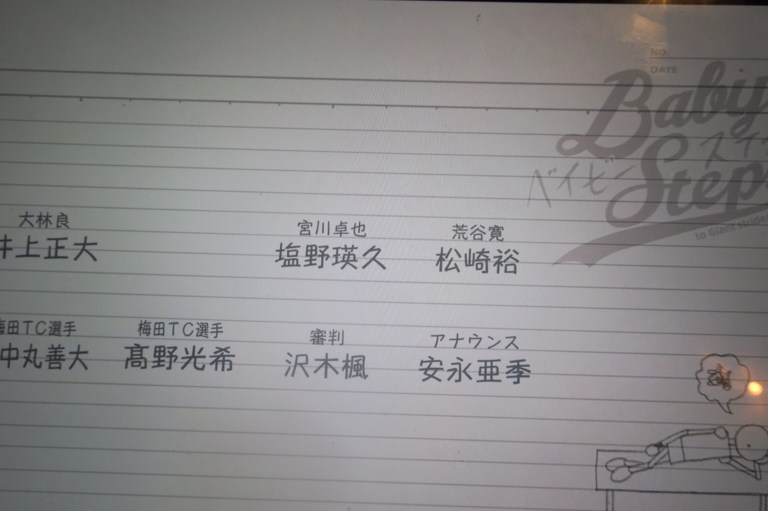 NO.
DATE
Baby
ベイビー
Step
大林良
井上正大
宮川卓也
塩野瑛久
荒谷寛
松崎裕
梅田TC選手
中丸善大
梅田TC選手
髙野光希
審判
沢木楓
アナウンス
安永亜季